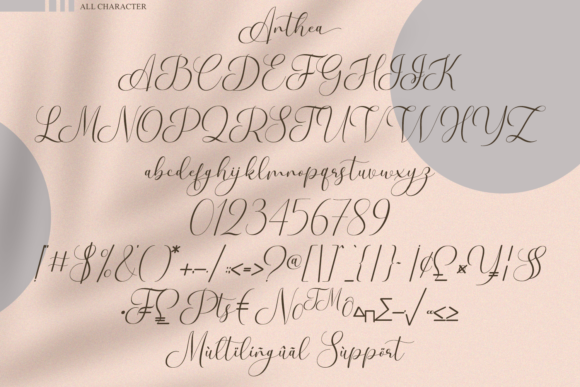 ALL CHARACTER
Anthea
ABCDEFGHIJK
LMNOPQRSTUVWXYZ
abcdefghijklmnopqrstuvwxyz
0123456789
!"#$%&'()*+,-./:;<=>?@[\]^_`{|}~ ¡¢£¤¥¦§
·₣₤₧€№™Ω∆∏∑−√∞≤≥
Mùltïlíñgûâl Sùppõrt